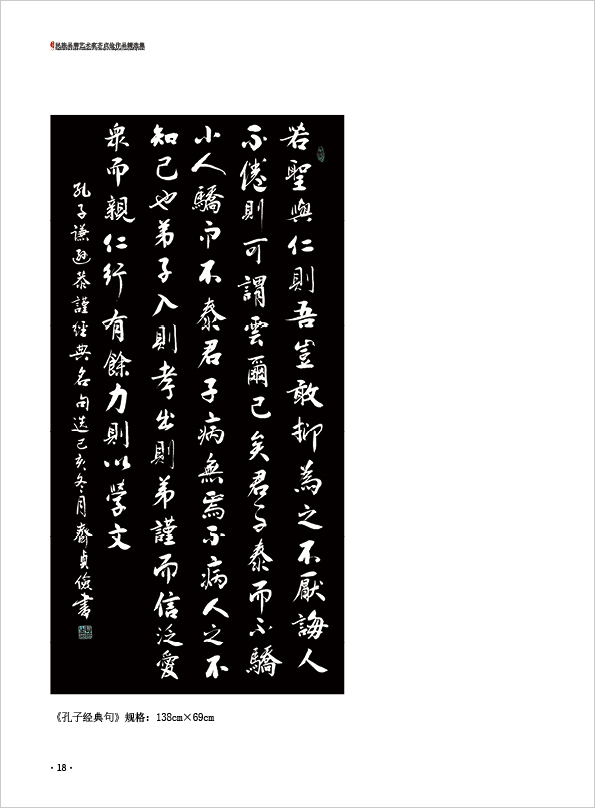 若聖與仁則吾豈敢抑為之不厭誨人
不倦則可謂雲爾已矣君子泰而不驕
小人驕而不泰君子病無焉不病人之不
知己也弟子入則孝出則弟謹而信泛愛
眾而親仁行有餘力則以學文
孔子謙遜恭謹經典名句选己亥冬月齊貞儉書
《孔子经典句》规格：138cm×69cm
·18·